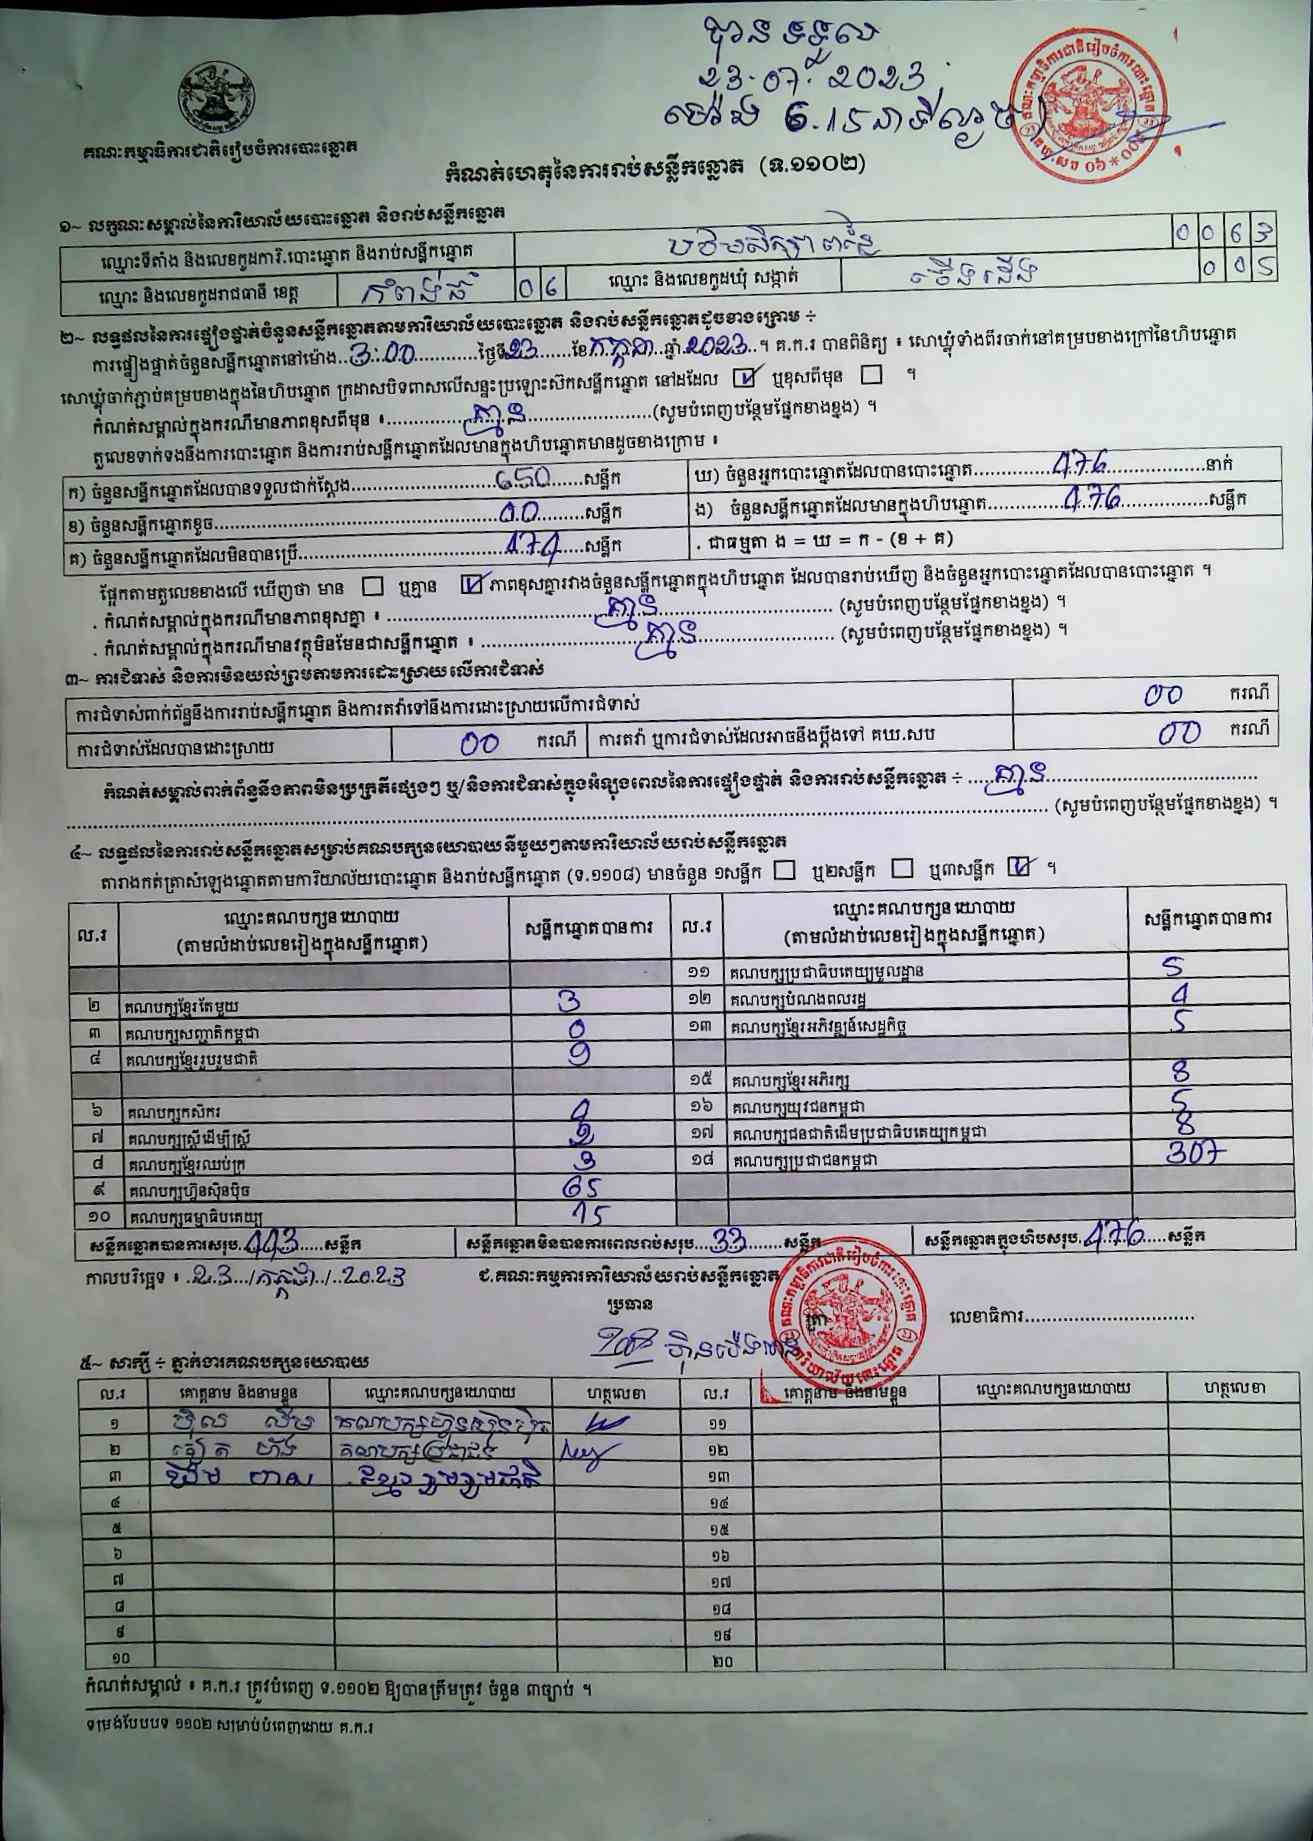 បានទទួល
23.07.2023
ម៉ោង 6.15 នាទីល្ងាច
គណៈកម្មាធិការជាតិរៀបចំការបោះឆ្នោត
កំណត់ហេតុនៃការរាប់សន្លឹកឆ្នោត (ទ.១១០២)
១~ លក្ខណៈសម្គាល់នៃការិយាល័យបោះឆ្នោត និងរាប់សន្លឹកឆ្នោត
ឈ្មោះទីតាំង និងលេខកូដការិ.បោះឆ្នោត និងរាប់សន្លឹកឆ្នោត 0063
ឈ្មោះ និងលេខកូដរាជធានី ខេត្ត កំពង់ធំ 06 ឈ្មោះ និងលេខកូដឃុំ សង្កាត់ ជើងដើង 005
២~ លទ្ធផលនៃការផ្ទៀងផ្ទាត់ចំនួនសន្លឹកឆ្នោតតាមការិយាល័យបោះឆ្នោត និងរាប់សន្លឹកឆ្នោតដូចខាងក្រោម ÷
ការផ្ទៀងផ្ទាត់ចំនួនសន្លឹកឆ្នោតនៅម៉ោង..3:00............ថ្ងៃទី23......ខែកក្កដា..ឆ្នាំ.2023..។ គ.ក.រ បានពិនិត្យ ៖ សោឃ្លុំទាំងពីរចាក់នៅគម្របខាងក្រៅនៃហិបឆ្នោត
សោឃ្លុំចាក់ភ្ជាប់គម្របខាងក្នុងនៃហិបឆ្នោត ក្រដាសបិទពាសលើសន្ទះប្រឡោះស៊កសន្លឹកឆ្នោត នៅដដែល ☑ ឬខុសពីមុន ☐ ។
កំណត់សម្គាល់ក្នុងករណីមានភាពខុសពីមុន ៖............គ្មាន..................(សូមបំពេញបន្ថែមផ្នែកខាងខ្នង) ។
តួលេខទាក់ទងនឹងការបោះឆ្នោត និងការរាប់សន្លឹកឆ្នោតដែលមានក្នុងហិបឆ្នោតមានដូចខាងក្រោម ៖
ក) ចំនួនសន្លឹកឆ្នោតដែលបានទទួលជាក់ស្តែង..................650......សន្លឹក ឃ) ចំនួនអ្នកបោះឆ្នោតដែលបានបោះឆ្នោត............476............នាក់
ខ) ចំនួនសន្លឹកឆ្នោតខូច..............................00........សន្លឹក ង) ចំនួនសន្លឹកឆ្នោតដែលមានក្នុងហិបឆ្នោត............476............សន្លឹក
គ) ចំនួនសន្លឹកឆ្នោតដែលមិនបានប្រើ........................174......សន្លឹក . ជាធម្មតា ង = ឃ = ក - (ខ + គ)
ផ្អែកតាមតួលេខខាងលើ ឃើញថា មាន ☐ ឬគ្មាន ☑ ភាពខុសគ្នារវាងចំនួនសន្លឹកឆ្នោតក្នុងហិបឆ្នោត ដែលបានរាប់ឃើញ និងចំនួនអ្នកបោះឆ្នោតដែលបានបោះឆ្នោត ។
. កំណត់សម្គាល់ក្នុងករណីមានភាពខុសគ្នា ៖ ..............................គ្មាន........................ (សូមបំពេញបន្ថែមផ្នែកខាងខ្នង) ។
. កំណត់សម្គាល់ក្នុងករណីមានវត្ថុមិនមែនជាសន្លឹកឆ្នោត ៖ ........................គ្មាន.................. (សូមបំពេញបន្ថែមផ្នែកខាងខ្នង) ។
៣~ ការជំទាស់ និងការមិនយល់ព្រមតាមការដោះស្រាយលើការជំទាស់
ការជំទាស់ពាក់ព័ន្ធនឹងការរាប់សន្លឹកឆ្នោត និងការតវ៉ាទៅនឹងការដោះស្រាយលើការជំទាស់ 00 ករណី
ការជំទាស់ដែលបានដោះស្រាយ 00 ករណី ការតវ៉ា ឬការជំទាស់ដែលអាចនឹងប្តឹងទៅ គឃ.សប 00 ករណី
កំណត់សម្គាល់ពាក់ព័ន្ធនឹងភាពមិនប្រក្រតីផ្សេងៗ ឬ/និងការជំទាស់ក្នុងអំឡុងពេលនៃការផ្ទៀងផ្ទាត់ និងការរាប់សន្លឹកឆ្នោត ÷ .....គ្មាន..............................
(សូមបំពេញបន្ថែមផ្នែកខាងខ្នង) ។
៤~ លទ្ធផលនៃការរាប់សន្លឹកឆ្នោតសម្រាប់គណបក្សនយោបាយនីមួយៗតាមការិយាល័យរាប់សន្លឹកឆ្នោត
តារាងកត់ត្រាសំឡេងឆ្នោតតាមការិយាល័យបោះឆ្នោត និងរាប់សន្លឹកឆ្នោត (ទ.១១០៨) មានចំនួន ១សន្លឹក ☐ ឬ២សន្លឹក ☐ ឬ៣សន្លឹក ☑ ។
ល.រ ឈ្មោះគណបក្សនយោបាយ (តាមលំដាប់លេខរៀងក្នុងសន្លឹកឆ្នោត) សន្លឹកឆ្នោតបានការ ល.រ ឈ្មោះគណបក្សនយោបាយ (តាមលំដាប់លេខរៀងក្នុងសន្លឹកឆ្នោត) សន្លឹកឆ្នោតបានការ
១១ គណបក្សប្រជាធិបតេយ្យមូលដ្ឋាន 5
២ គណបក្សខ្មែរតែមួយ 3 ១២ គណបក្សបំណងពលរដ្ឋ 4
៣ គណបក្សសញ្ជាតិកម្ពុជា 0 ១៣ គណបក្សខ្មែរអភិវឌ្ឍន៍សេដ្ឋកិច្ច 5
៤ គណបក្សខ្មែររួបរួមជាតិ 9
១៥ គណបក្សខ្មែរអភិរក្ស 8
៦ គណបក្សកសិករ ១៦ គណបក្សយុវជនកម្ពុជា 5
៧ គណបក្សស្ត្រីដើម្បីស្ត្រី ១៧ គណបក្សជនជាតិដើមប្រជាធិបតេយ្យកម្ពុជា 8
៨ គណបក្សខ្មែរឈប់ក្រ 3 ១៨ គណបក្សប្រជាជនកម្ពុជា 307
៩ គណបក្សហ៊្វុនស៊ិនប៉ិច 65
១០ គណបក្សធម្មាធិបតេយ្យ 15
សន្លឹកឆ្នោតបានការសរុប..443.....សន្លឹក សន្លឹកឆ្នោតមិនបានការពេលរាប់សរុប...33........សន្លឹក សន្លឹកឆ្នោតក្នុងហិបសរុប.476.....សន្លឹក
កាលបរិច្ឆេទ ៖ .23.../កក្កដា../..2023 ជ.គណៈកម្មការការិយាល័យរាប់សន្លឹកឆ្នោត
ប្រធាន ត្រា លេខាធិការ..............................
៥~ សាក្សី ÷ ភ្នាក់ងារគណបក្សនយោបាយ
ល.រ គោត្តនាម និងនាមខ្លួន ឈ្មោះគណបក្សនយោបាយ ហត្ថលេខា ល.រ គោត្តនាម និងនាមខ្លួន ឈ្មោះគណបក្សនយោបាយ ហត្ថលេខា
១ គណបក្សហ៊្វុនស៊ិនប៉ិច ១១
២ គណបក្សប្រជាជន ១២
៣ ខ្មែររួបរួមជាតិ ១៣
៤ ១៤
៥ ១៥
៦ ១៦
៧ ១៧
៨ ១៨
៩ ១៩
១០ ២០
កំណត់សម្គាល់ ៖ គ.ក.រ ត្រូវបំពេញ ទ.១១០២ ឱ្យបានត្រឹមត្រូវ ចំនួន ៣ច្បាប់ ។
ទម្រង់បែបបទ ១១០២ សម្រាប់បំពេញដោយ គ.ក.រ